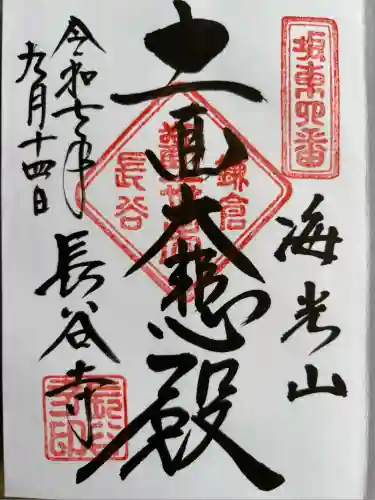 坂東四番
海光山
十一面大悲殿
鎌倉
長谷
長谷寺
令和七年
九月十四日
長谷
寺印